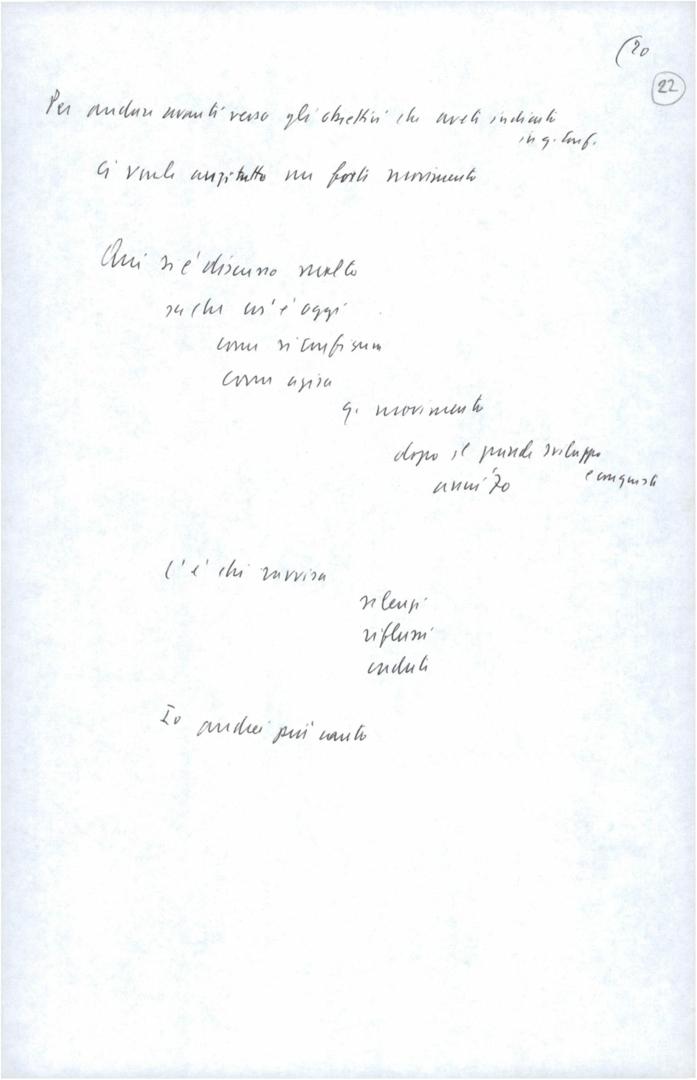 (20
22
Per andare avanti verso gli obiettivi che avete indicati
in q. Conf.
Ci vuole anzitutto un forte movimento
Qui si è discusso molto
su che cos'è oggi
come si configura
come agisca
q. movimento
dopo il grande sviluppo
e conquiste
anni '70
C'è chi ravvisa
silenzi
riflussi
cadute
Io andrei più cauto